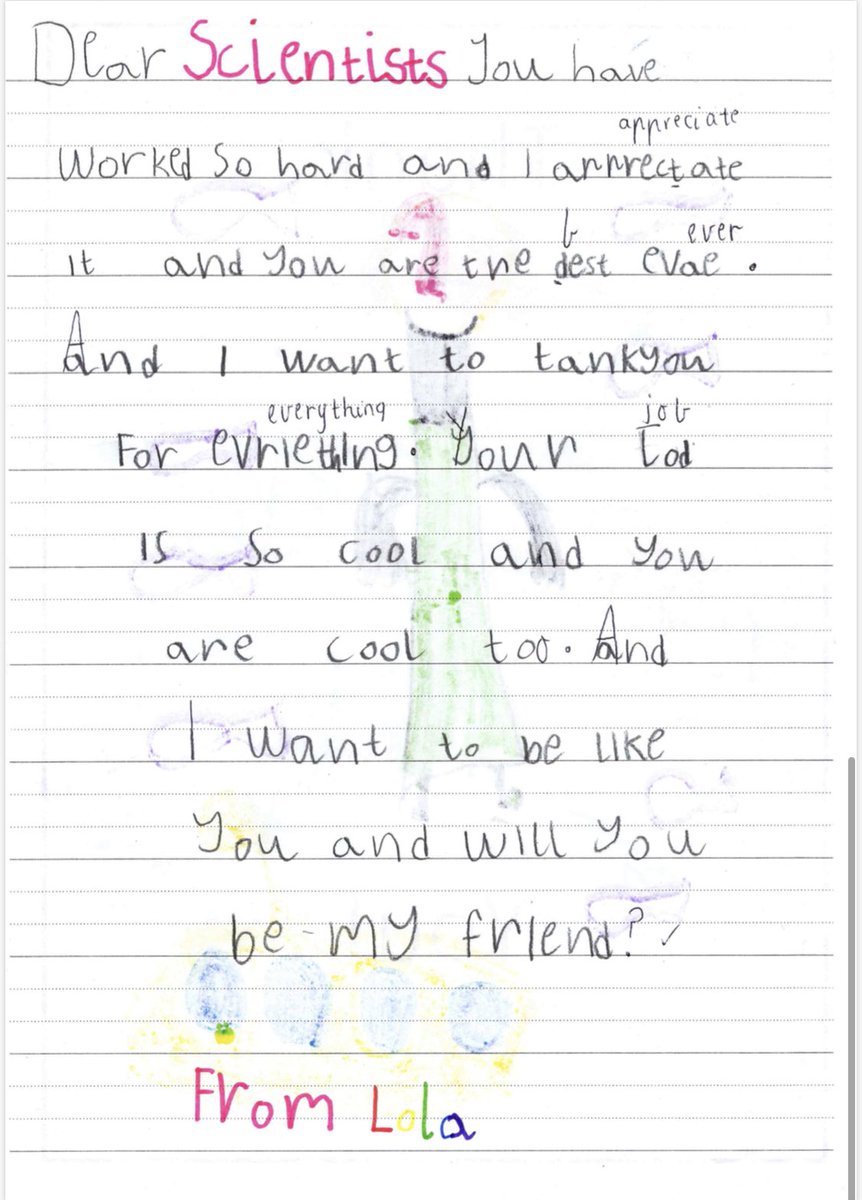 Dear Scientists You have
appreciate
Worked So hard and I apprectate
b ever
it and You are the dest evae.
And I want to tankyou
everything job
For evriething. Your tod
is So cool and you
are cool too. And
I want to be like
You and will you
be my friend?
From Lola